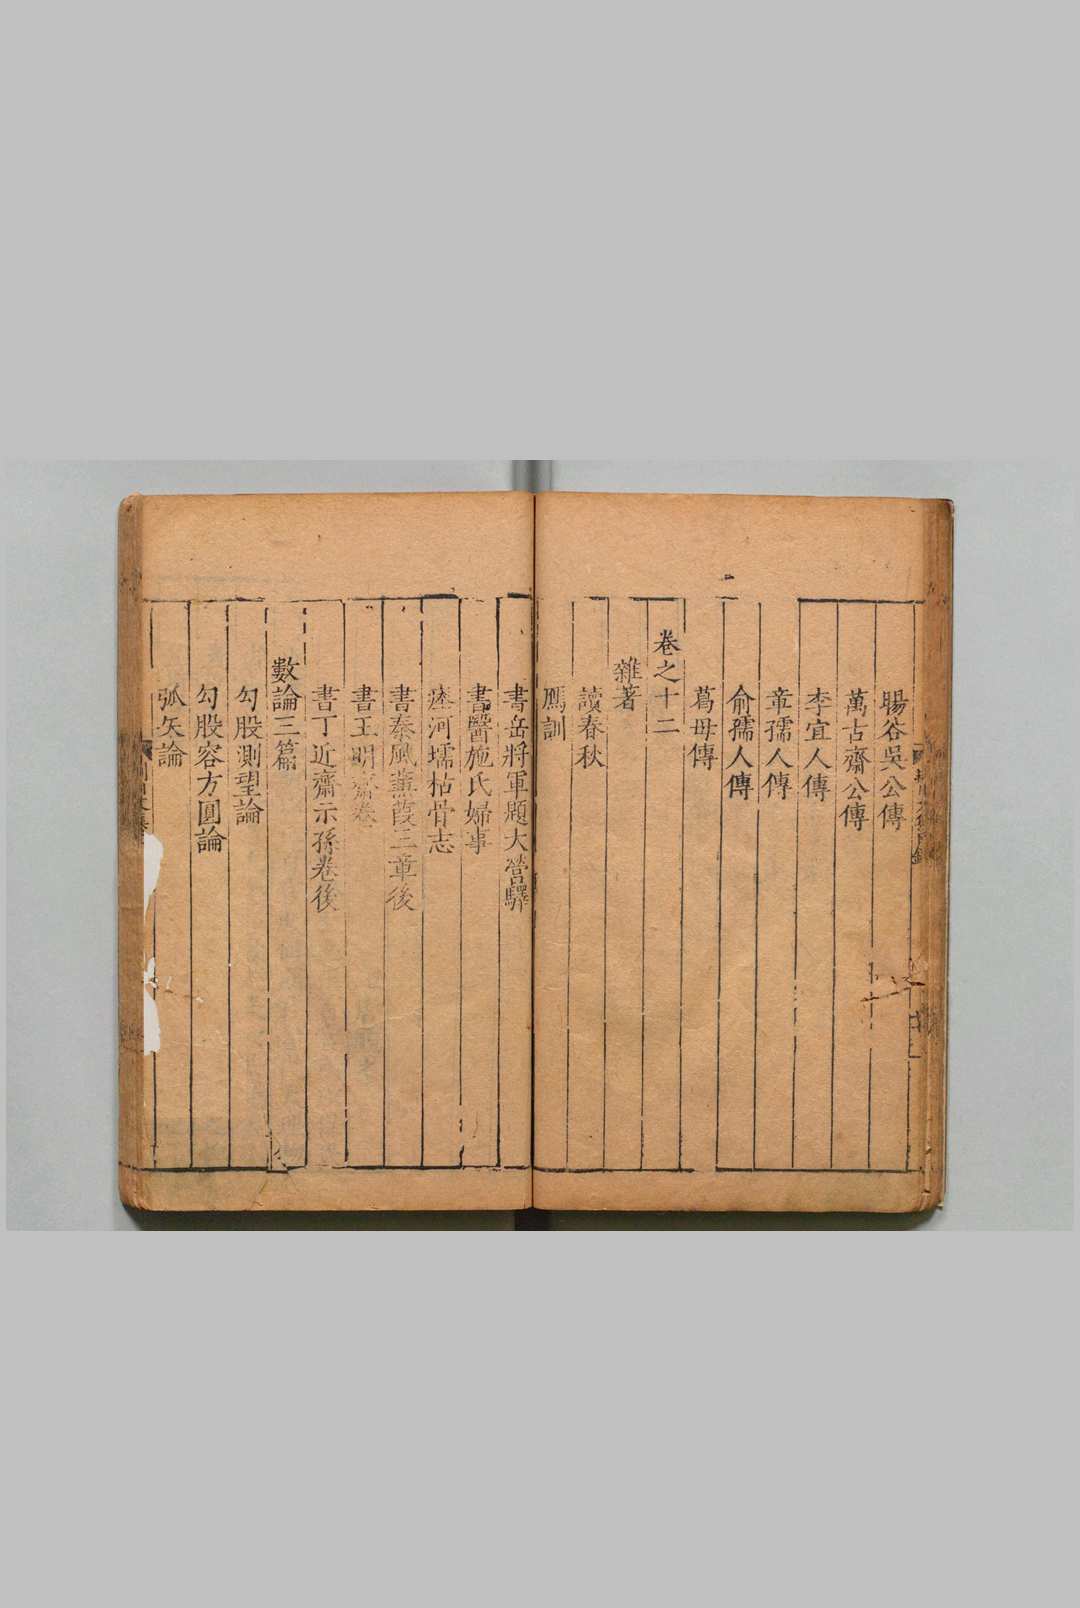 暘谷吳公傳
萬古齋公傳
李宜人傳
章孺人傳
俞孺人傳
葛母傳
卷之十二
雜著
讀春秋
鴈訓
書岳將軍題大營驛
書醫施氏婦事
瘞河壖枯骨志
書秦風蒹葭三章後
書王明齋卷
書丁近齋示孫卷後
數論三篇
勾股測望論
勾股容方圓論
弧矢論